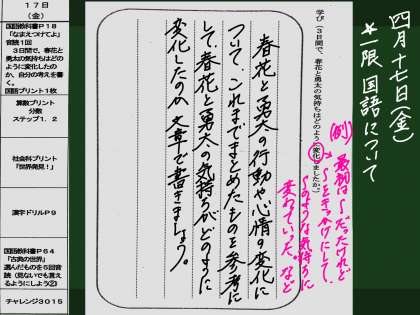 四月十七日(金)
*一限 国語について
学び(3日間で、春花と勇太の気持ちはどのように変化しましたか。)
(例)最初は〜だったけれど
〜をきっかけにして、
〜のような気持ちに
変わていった。など
春花と勇太の行動や心情の変化に
ついて、これまでまとめたものを参考に
して、春花と勇太の気持ちがどのように
変化したのか文章で書きましょう。
17日
(金)
国語教科書P18
「なまえつけてよ」
音読1回
3日間で、春花と
勇太の気持ちはどの
ように変化したの
か、自分の考えを書
く。
国語プリント1枚
算数プリント
分数
ステップ1.2
社会科プリント
「世界発見!」
漢字ドリルP9
国語教科書P64
「古典の世界」
選んだものを5回音
読(見ないでも言え
るようにしよう②)
チャレンジ3015